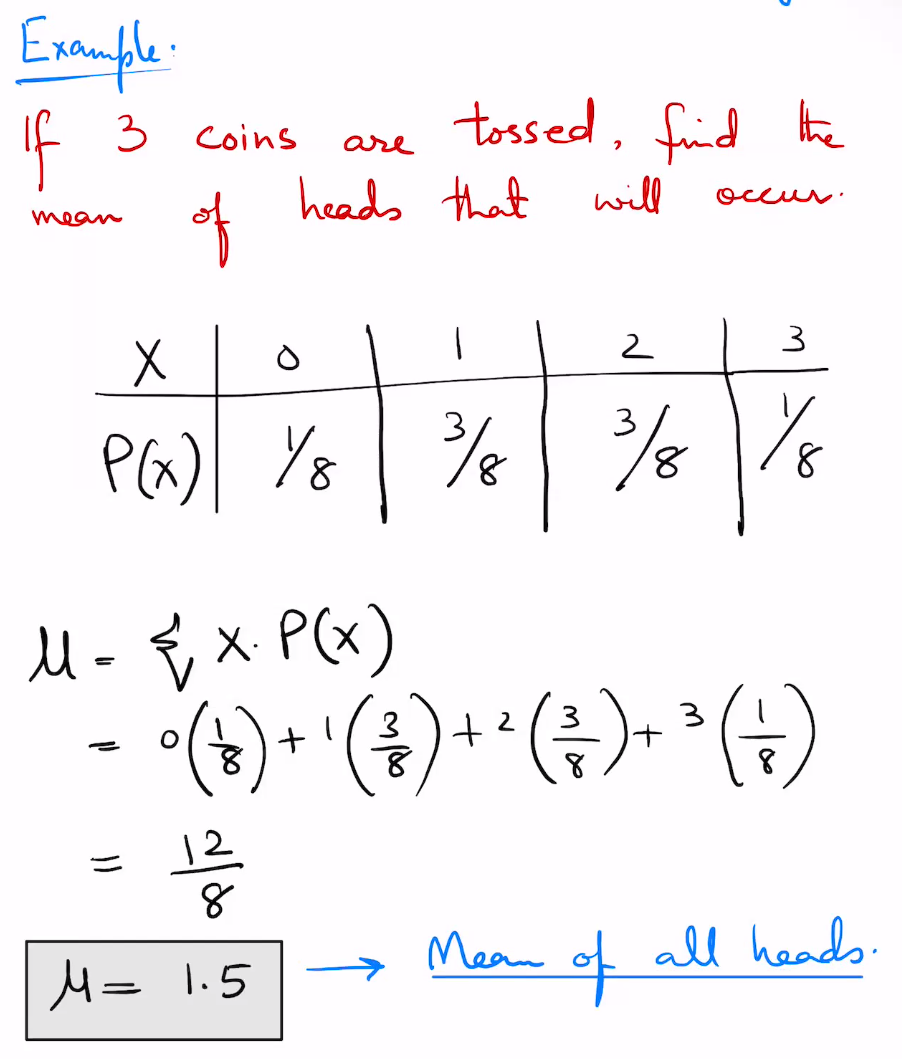 Example:
If 3 coins are tossed, find the
mean of heads that will occur.
X 0 1 2 3
P(x) 1/8 3/8 3/8 1/8
μ = Σ X · P(x)
= 0(1/8) + 1(3/8) + 2(3/8) + 3(1/8)
= 12/8
μ = 1.5 → Mean of all heads.